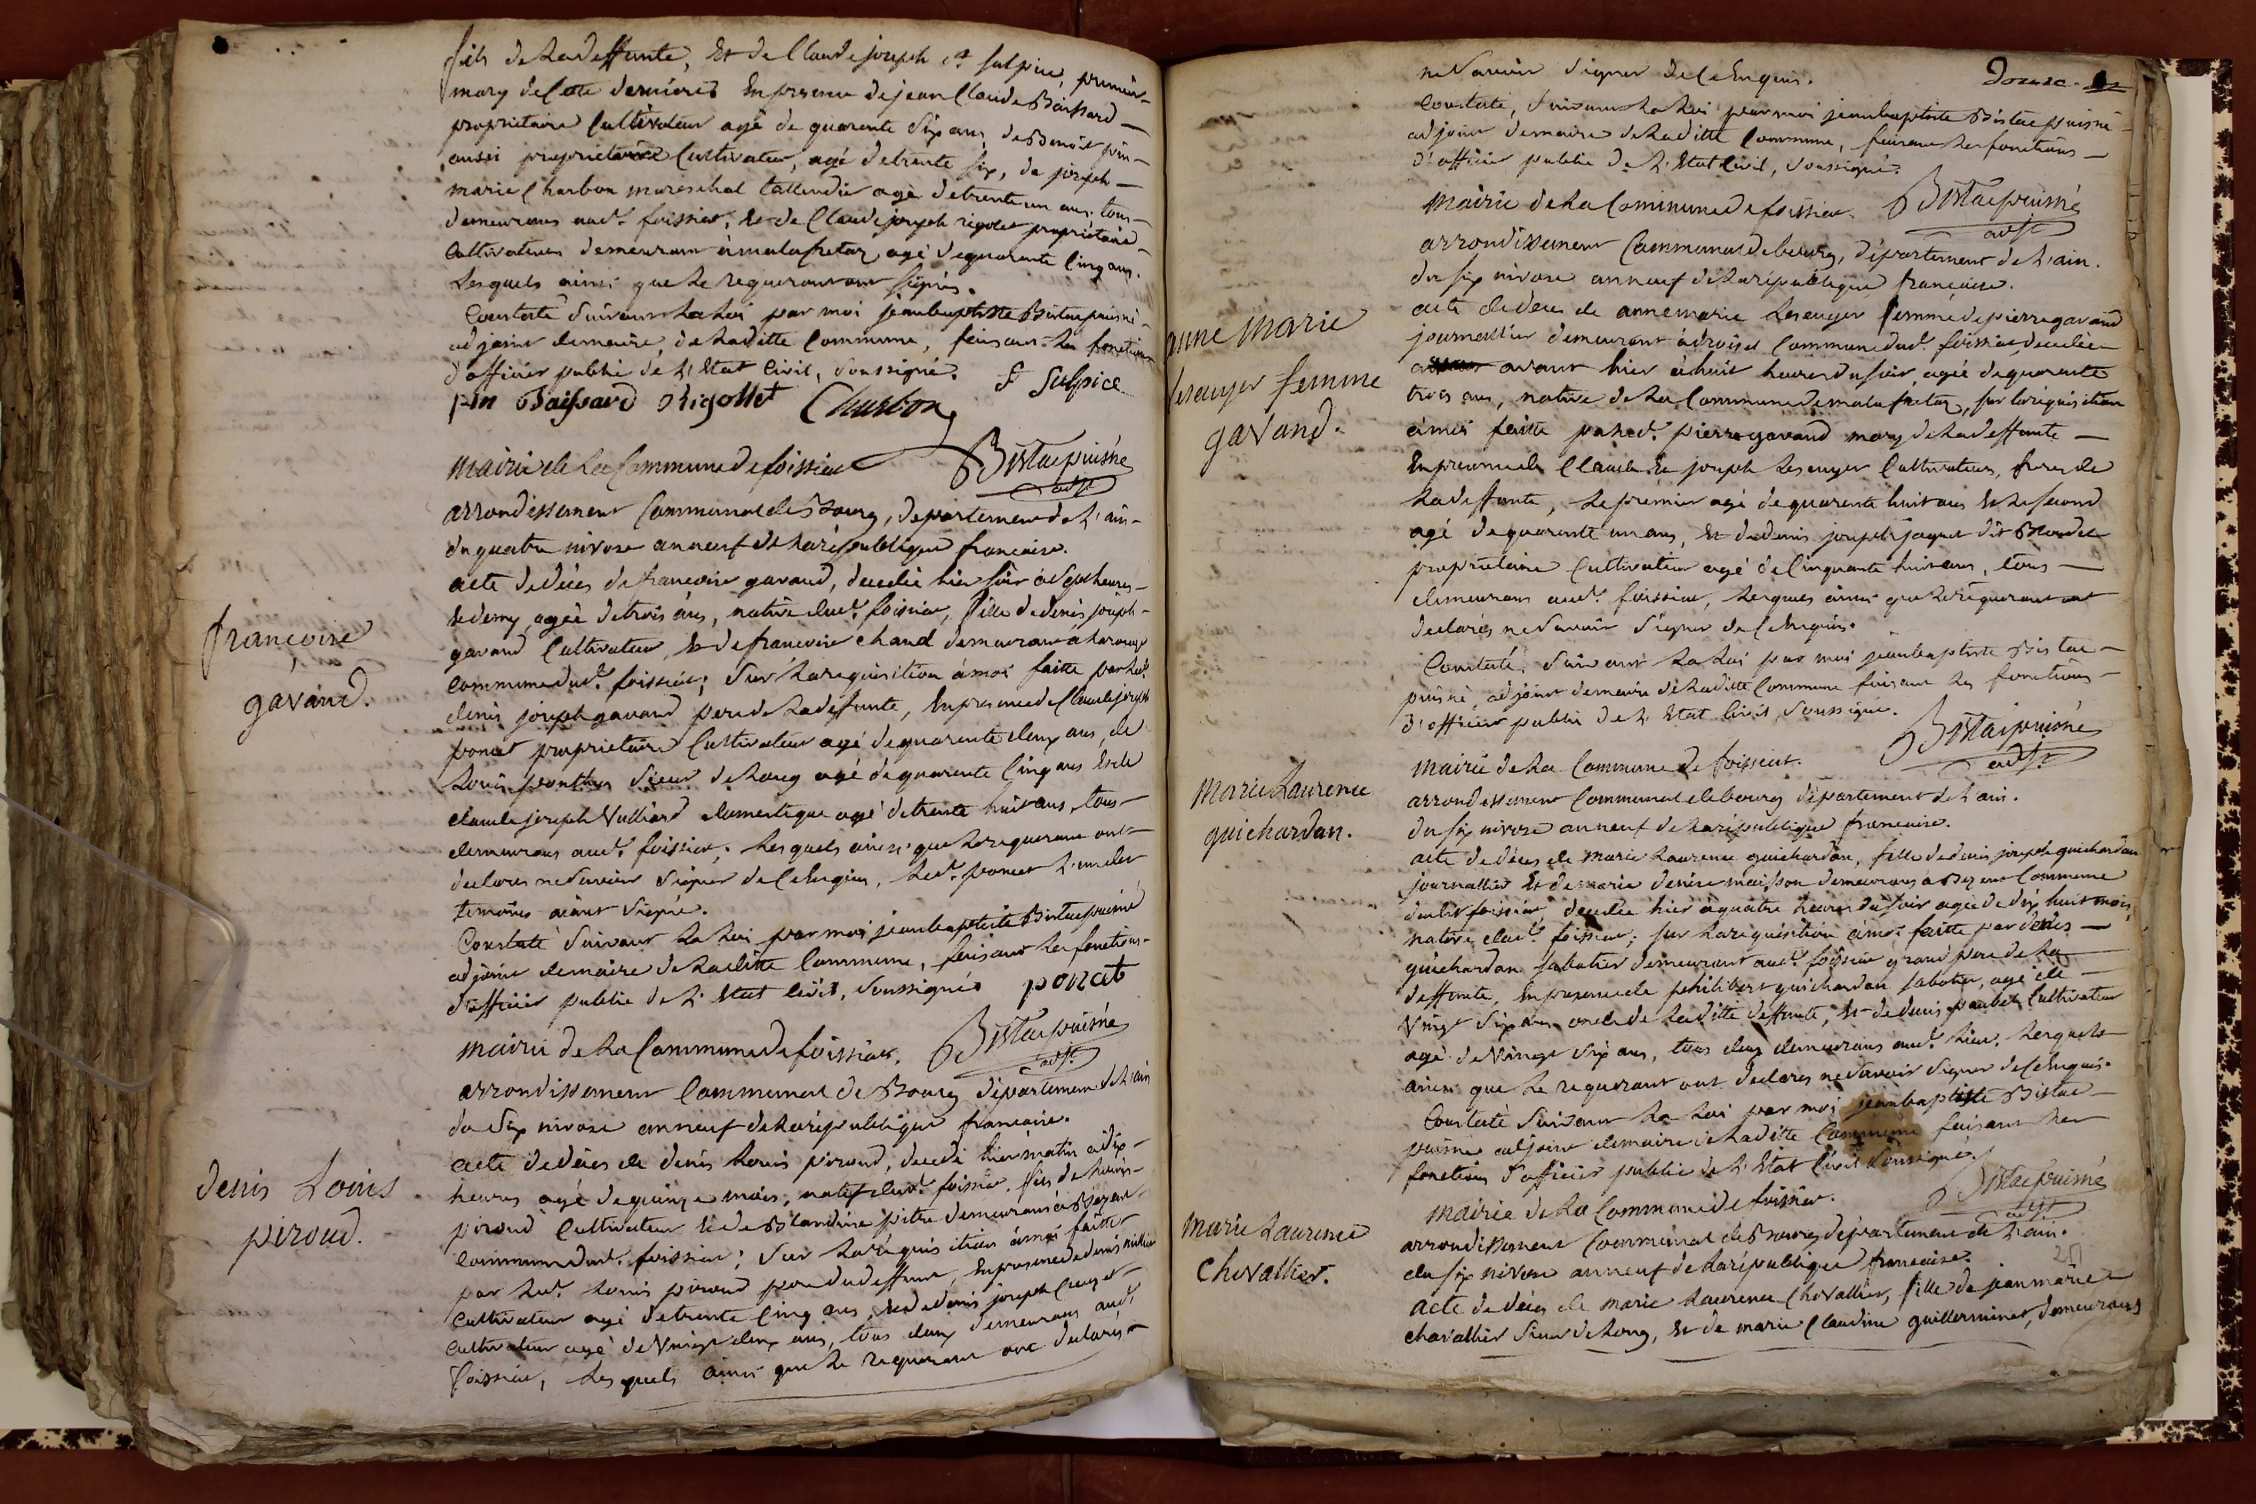 fils de la deffunte, Et de Claude joseph sulpice, premier
mary de Cette derniere, En presence de jean Claude Boissard
proprietaire Cultivateur agé de quarente six ans, de Benoit pin
aussi proprietaire Cultivateur, agé de trente six, de joseph
marie Charbon mareschal tallendier agé de trente un ans, tous
demeurans aud.t foissiat, Et de Claude joseph rigolet proprietaire
Cultivateur demeurant à malafretaz agé de quarente Cinq ans.
Lesquels ainsi que le requerant ont signés.
Constaté suivant La Loi par moi jean baptiste Bistac puisné
adjoint de maire, de Laditte Commune, faisant Les fonctions
d'officier public de L'Etat Civil, soussigné.
f sulpice
pin Boissard Rigollet Charbon
Bistac puisné
adjt
mairie de La Commune de foissiat
arrondissement Communal de Bourg, departement de L'ain
du quatre nivose an neuf de La republique francaise.
françoise
gavand.
acte de déces de francoise gavand, decedée hier soir à sept heures
Et demy, agée de trois ans, native dud.t foissiat, fille de denis joseph
gavand Cultivateur, Et de francoise chanel demeurans à
Commune dud.t foissiat; Sur La requisition à moi faitte par Led.t
denis joseph gavand pere de La defunte, En presence de Claude joseph
poncet proprietaire Cultivateur agé de quarente deux ans, de
Louis ponthus Sieur de Long agé de quarente Cinq ans Et de
claude joseph Vulliard domestique agé de trente huit ans, tous
demeurans aud.t foissiat, Lesquels ainsi que Le requerant ont
declarés ne savoir signer de Ce Enquis, Led.t poncet L'un des
temoins aiant signé.
Constaté suivant La Loi par moi jean baptiste Bistac puisné
adjoint de maire de Laditte Commune, faisant Les fonctions
d'officier public de L'Etat Civil, soussigné poncet
Bistac puisné
adjt
mairie de La Commune de foissiat.
arrondissement Communal de Bourg département de L'ain
du six nivose an neuf de La république francaise.
denis Louis
piroud.
acte de déces de denis Louis piroud, decedé hier matin à dix
heures agé de quinze mois, natif dud.t foissiat, fils de Louis
piroud Cultivateur Et de Blandine pitre demeurans à
Commune dud.t foissiat; Sur La réquisition à moi faitte
par Led.t Louis piroud pere du deffunt, En presence de denis
Cultivateur agé de trente Cinq ans, Et de denis joseph Creuzet
Cultivateur agé de Vingt deux ans, tous deux demeurans aud.t
foissiat, Les quels ainsi que Le requerant ont declarés
douze
ne savoir signer de Ce Enquis.
Constaté, suivant La Loi par moi jean baptiste Bistac puisné
adjoint de maire de Laditte Commune, faisant Les fonctions
d'officier public de L'Etat Civil, soussigné.
mairie de La Commune de foissiat. Bistac puisné
adjt
arrondissement Communal de bourg, département de L'ain.
du six nivose an neuf de La république française.
anne Marie
Lesauger femme
gavand.
acte de déces de anne marie Lesauger femme de pierre gavand
journallier demeurant à Commune dud.t foissiat, decedée
avant hier à huit heures du soir, agée de quarante
trois ans, native de La Commune de malafretaz, sur La requisition
à moi faitte par Led.t pierre gavand mary de La deffunte
En presence de Claude Et joseph Lesauger Cultivateurs, freres de
La deffunte, Le premier agé de quarente huit ans Et Le second
agé de quarente un ans, Et de denis joseph jaquet dit
proprietaire Cultivateur agé de Cinquante huit ans, tous
demeurans aud.t foissiat, Lesquels ainsi que Le requerant ont
declarés ne savoir signer de Ce Enquis.
Constaté, suivant La Loi par moi jean baptiste Bistac
puisné, adjoint de maire de Laditte Commune faisant Les fonctions
d'officier public de L'Etat Civil soussigné.
Bistac puisné
adjt
mairie de La Commune de foissiat.
arrondissement Communal de bourg département de L'ain.
du six nivose an neuf de La république francaise.
Marie Laurence
guichardan.
acte de déces de marie Laurence guichardan, fille de denis joseph guichardan
journallier Et de marie denise maisson demeurans à Commune
dudit foissiat, decedée hier à quatre heures du soir agée de dix huit mois,
native dud.t foissiat; sur La requisition à moi faitte par denis
guichardan sabotier demeurant aud.t foissiat grand pere de La
deffunte, En presence de philibert guichardan sabotier, agé de
Vingt six ans oncle de Laditte deffunte, Et de denis paubel Cultivateur
agé de Vingt six ans, tous deux demeurans aud.t Lieu, Lesquels
ainsi que Le requerant ont declarés ne savoir signer de Ce Enquis.
Constaté suivant La Loi par moi jean baptiste Bistac
puisné adjoint de maire de Laditte Commune faisant Les
fonctions d'officier public de L'Etat Civil soussigné.
Bistac puisné
adjt
mairie de La Commune de foissiat.
arrondissement Communal de Bourg département de L'ain.
du six nivose an neuf de La république française.
Marie Laurence
Chevallier.
acte de déces de marie Laurence Chevallier, fille de jean marie
chevallier Sieur de Long, Et de marie Claudine guillerminet, demeurans